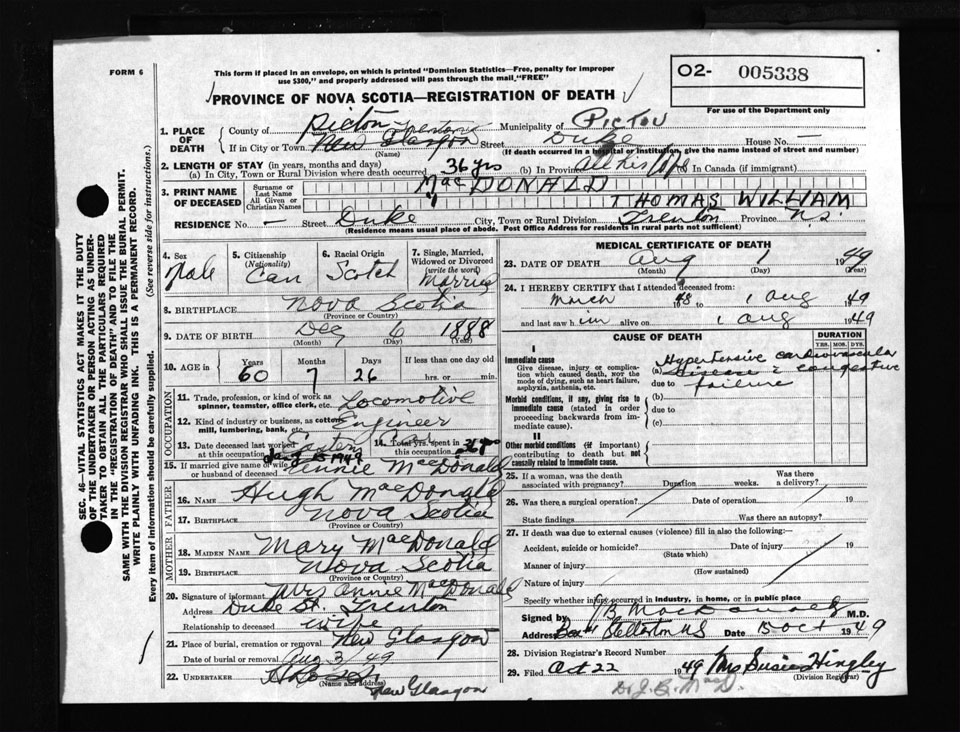 FORM 6
This form if placed in an envelope, on which is printed "Dominion Statistics—Free, penalty for improper
use $300," and properly addressed will pass through the mail, "FREE"
O2- 005338
For use of the Department only
PROVINCE OF NOVA SCOTIA—REGISTRATION OF DEATH
1. PLACE OF DEATH
County of Pictou Municipality of PICTOU
If in City or Town Trenton New Glasgow Street Duke House No. —
(Name) (If death occurred in a hospital or institution, give the name instead of street and number)
2. LENGTH OF STAY (in years, months and days)
(a) In City, Town or Rural Division where death occurred 36 yrs (b) In Province all his life (c) In Canada (if immigrant)
3. PRINT NAME OF DECEASED
Surname or Last Name MacDONALD
All Given or Christian Names THOMAS WILLIAM
RESIDENCE No. Street Duke City, Town or Rural Division Trenton Province N.S.
(Residence means usual place of abode. Post Office Address for residents in rural parts not sufficient)
4. Sex Male
5. Citizenship (Nationality) Can
6. Racial Origin Scotch
7. Single, Married, Widowed or Divorced (write the word) Married
8. BIRTHPLACE Nova Scotia
(Province or Country)
9. DATE OF BIRTH Dec 6 1888
(Month) (Day) (Year)
10. AGE in Years Months Days If less than one day old
60 7 26 hrs. or min.
OCCUPATION
11. Trade, profession, or kind of work as spinner, teamster, office clerk, etc. Locomotive
12. Kind of industry or business, as cotton mill, lumbering, bank, etc. Engineer
13. Date deceased last worked at this occupation 1949
14. Total yrs. spent in this occupation 26 yrs
15. If married give name of wife or husband of deceased Annie MacDonald
FATHER
16. NAME Hugh MacDonald
17. BIRTHPLACE Nova Scotia
(Province or Country)
MOTHER
18. MAIDEN NAME Mary MacDonald
19. BIRTHPLACE Nova Scotia
(Province or Country)
20. Signature of informant Mrs Annie MacDonald
Address Duke St. Trenton
Relationship to deceased wife
21. Place of burial, cremation or removal New Glasgow
Date of burial or removal Aug 3/49
22. UNDERTAKER
(Name and address)
New Glasgow
MEDICAL CERTIFICATE OF DEATH
23. DATE OF DEATH Aug 1 1949
(Month) (Day) (Year)
24. I HEREBY CERTIFY that I attended deceased from:
March 48 to 1 Aug 1949
and last saw him alive on 1 Aug 1949
CAUSE OF DEATH
DURATION
YRS. MOS. DYS.
I
Immediate cause
Give disease, injury or complication which caused death, not the mode of dying, such as heart failure, asphyxia, asthenia, etc.
(a) Hypertensive cardiovascular
disease c congestive
due to failure
Morbid conditions, if any, giving rise to immediate cause (stated in order proceeding backwards from immediate cause).
(b)
due to
(c)
II
Other morbid conditions (if important) contributing to death but not causally related to immediate cause.
25. If a woman, was the death associated with pregnancy? Duration weeks. Was there a delivery?
26. Was there a surgical operation? Date of operation 19
State findings Was there an autopsy?
27. If death was due to external causes (violence) fill in also the following:—
Accident, suicide or homicide? Date of injury 19
(State which)
Manner of injury
(How sustained)
Nature of injury
Specify whether injury occurred in industry, in home, or in public place
Signed by M.D.
Address Stellarton NS Date 15 Oct 1949
28. Division Registrar's Record Number
29. Filed Oct 22 1949 Mrs Susie Hingley
(Division Registrar)
Dr. J. B. MacD.
SEC. 46—VITAL STATISTICS ACT MAKES IT THE DUTY
OF THE UNDERTAKER OR PERSON ACTING AS UNDER-
TAKER TO OBTAIN ALL THE PARTICULARS REQUIRED
IN THE "REGISTRATION OF DEATH" AND TO FILE THE
SAME WITH THE DIVISION REGISTRAR WHO SHALL ISSUE THE BURIAL PERMIT.
WRITE PLAINLY WITH UNFADING INK. THIS IS A PERMANENT RECORD.
Every item of information should be carefully supplied. (See reverse side for instructions.)